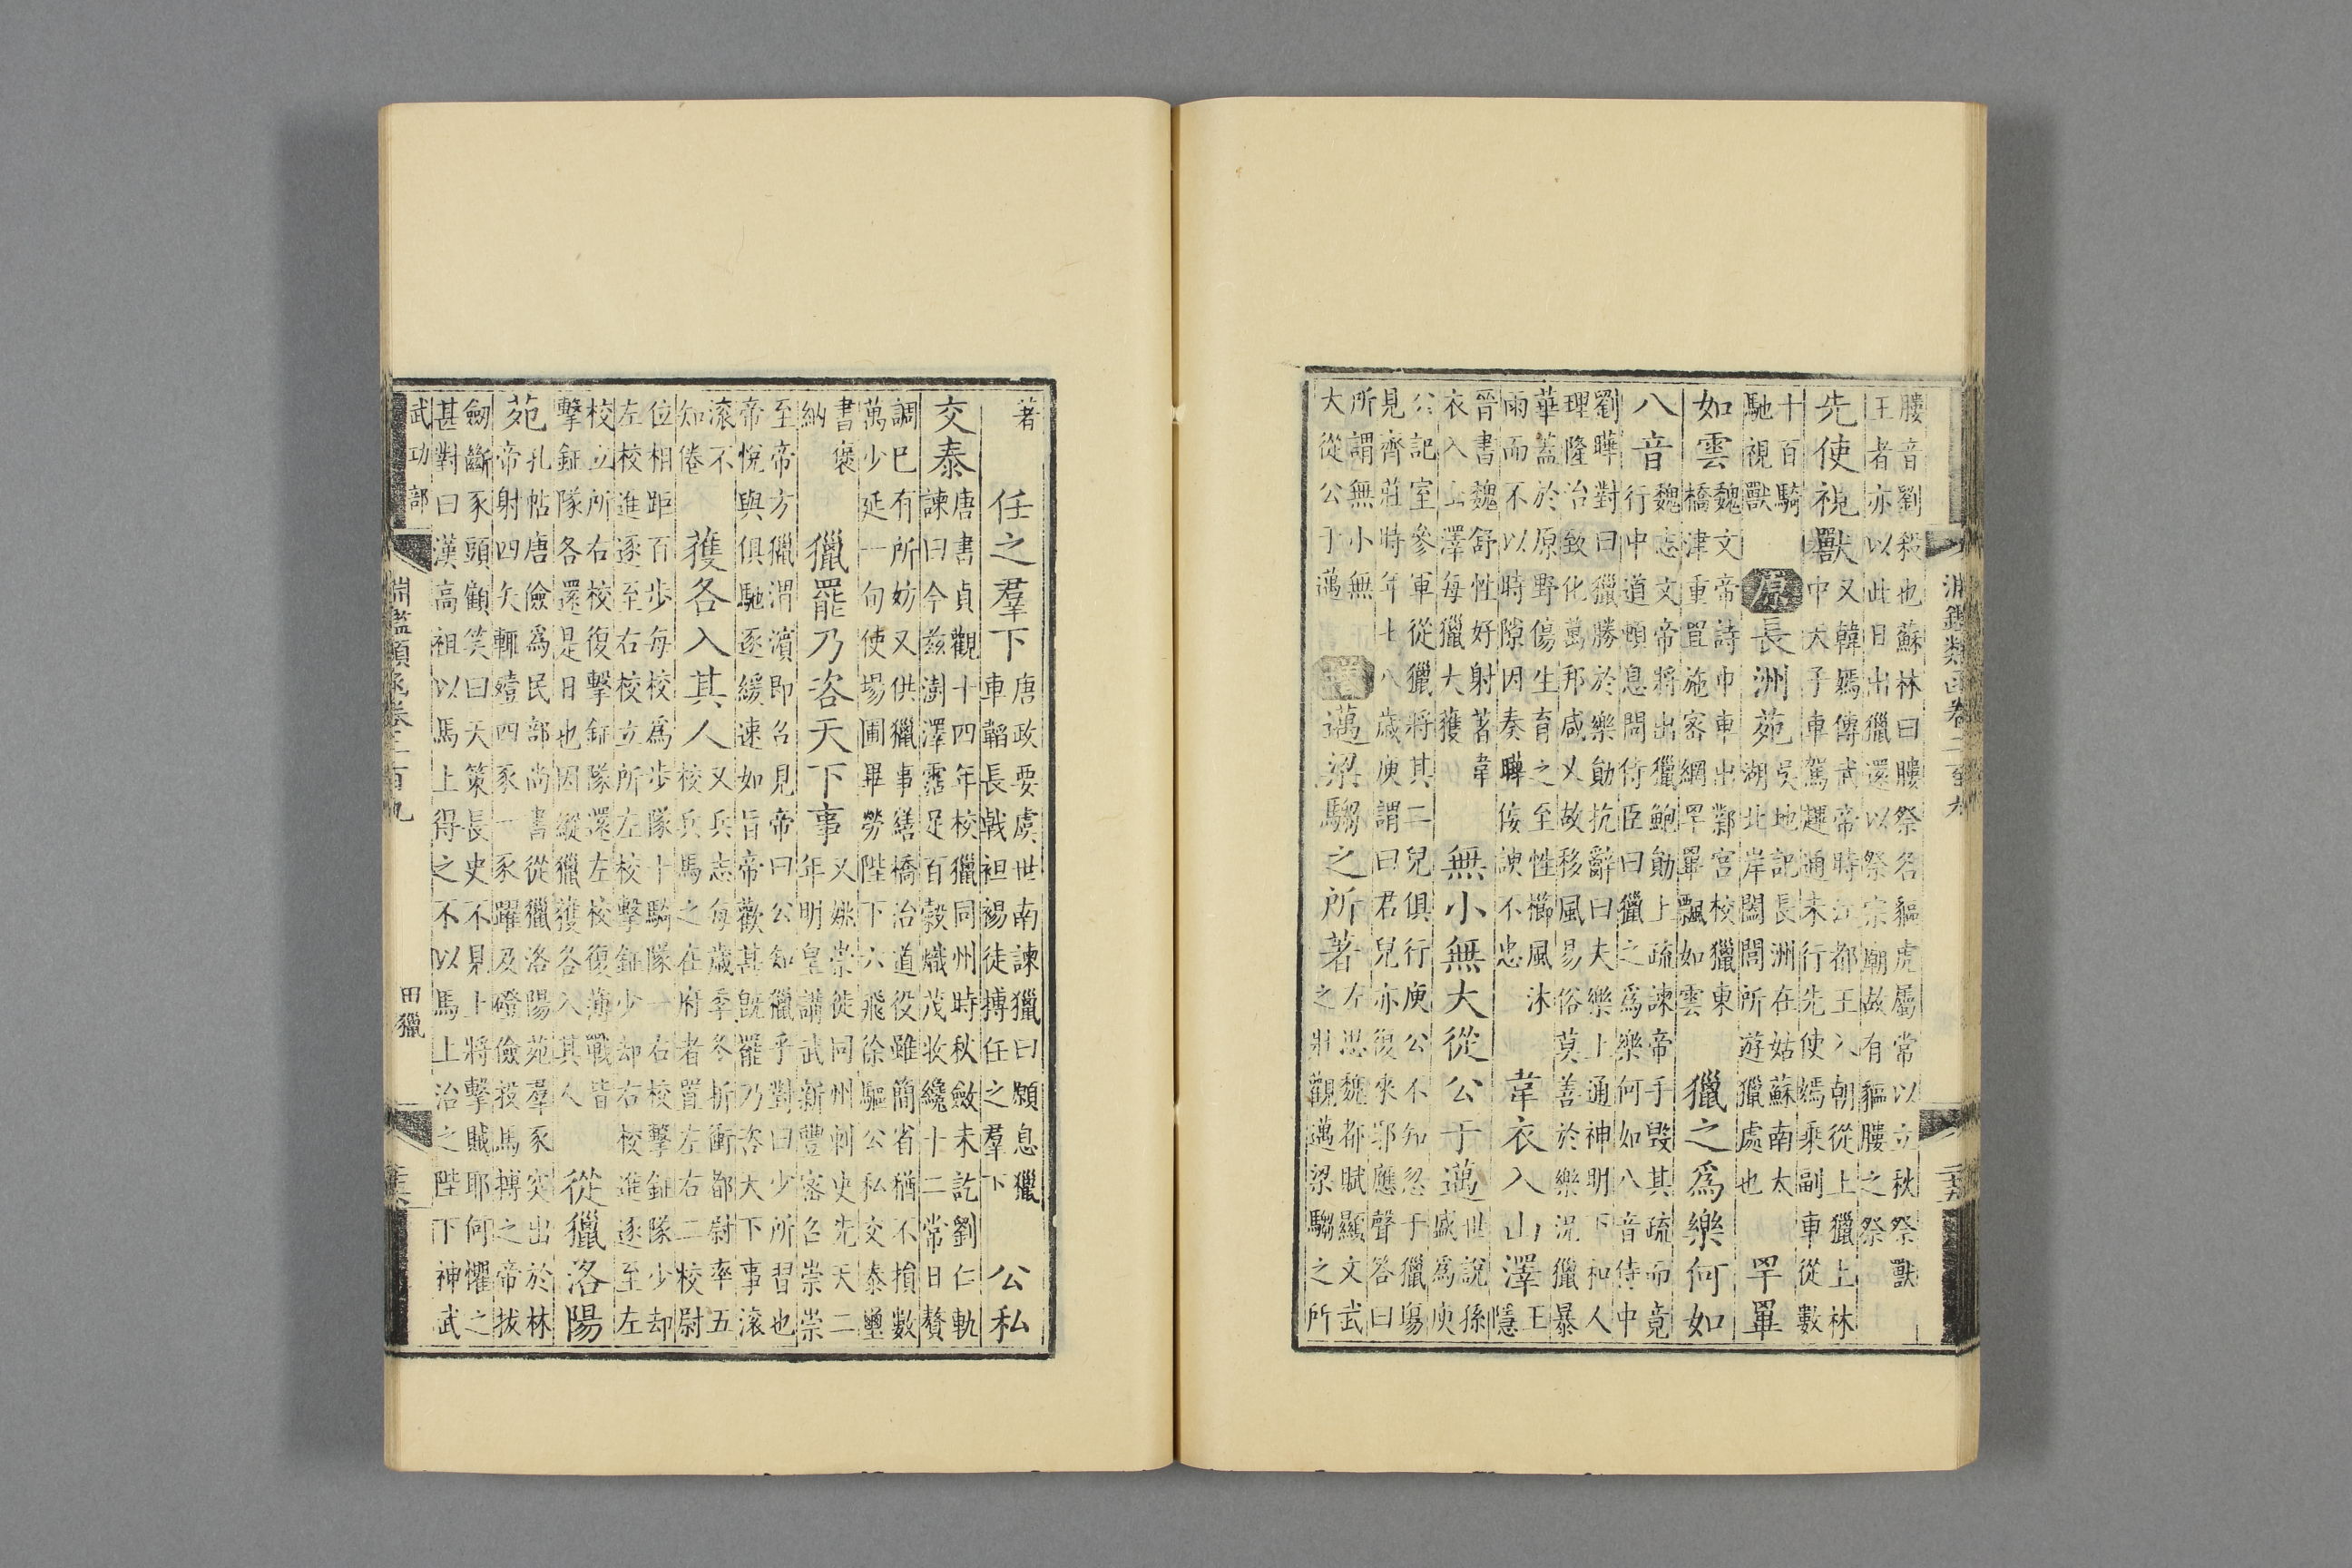 淵鑑類函卷二百九
膢音劉殺也蘇林曰膢祭名貙虎屬常以立秋祭獸
王者亦以此日出獵還以祭宗廟故有貙膢之祭
先使視獸
又韓嫣傳武帝時江都王入朝從上獵上林
中天子車駕趯通未行先使嫣乘副車從數
十百騎
馳視獸
原
長洲苑
吳地記長洲在姑蘇南太
湖北岸闔閭所遊獵處也
罕罼
如雲
魏文帝詩巾車出鄴宮校獵東
橋津重罝施密網罕罼飄如雲
獵之爲樂何如
八音
魏志文帝將出獵鮑勛上疏諫帝手毀其疏而竟
行中道頓息問侍臣曰獵之爲樂何如八音侍中
劉曄對曰獵勝於樂勛抗辭曰夫樂上通神明下和人
理隆治致化萬邦咸乂故移風易俗莫善於樂況獵暴
華蓋於原野傷生育之至性櫛風沐
雨而不以時隙因奏曄佞諛不忠
韋衣入山澤
王
隱
晉書魏舒性好射著韋
衣入山澤每獵大獲
無小無大從公于邁
世說孫
盛爲庾
公記室參軍從獵將其二兒俱行庾公不知忽于獵場
見齊莊時年七八歲庾謂曰君兒亦復來耶應聲答曰
所謂無小無
大從公于邁
增
邁梁騶之所著
左思魏都賦顯文武
之壯觀邁梁騶之所
著
任之羣下
唐政要虞世南諫獵曰願息獵
車韜長戟袒裼徒搏任之羣下
公私
交泰
唐書貞觀十四年校獵同州時秋斂未訖劉仁軌
諫曰今茲澍澤霑足百穀熾茂收纔十二常日贅
調巳有所妨又供獵事繕橋治道役雖簡省猶不損數
萬少延一旬使場圃畢勞陛下六飛徐驅公私交泰璽
書褒
納
獵罷乃咨天下事
又姚崇徙同州刺史先天二
年明皇講武新豐密召崇崇
至帝方獵渭濱即召見帝曰公知獵乎對曰少所習也
帝悅與俱馳逐緩速如旨帝歡甚既罷乃咨天下事滾
滾不
知倦
獲各入其人
又兵志每歲季冬折衝都尉率五
校兵馬之在府者置左右二校尉
位相距百步每校爲步隊十騎隊一右校擊鉦隊少却
左校進逐至右校立所左校擊鉦少却右校進逐至左
校立所右校復擊鉦隊還左校復薄戰皆
擊鉦隊各還是日也因縱獵獲各入其人
從獵洛陽
苑
孔帖唐儉爲民部尚書從獵洛陽苑羣豕突出於林
帝射四矢輒殪四豕一豕躍及磴儉投馬搏之帝拔
劒斷豕頭顧笑曰天策長史不見上將擊賊耶何懼之
甚對曰漢高祖以馬上得之不以馬上治之陛下神武
武功部
淵鑑類函卷二百九
田獵